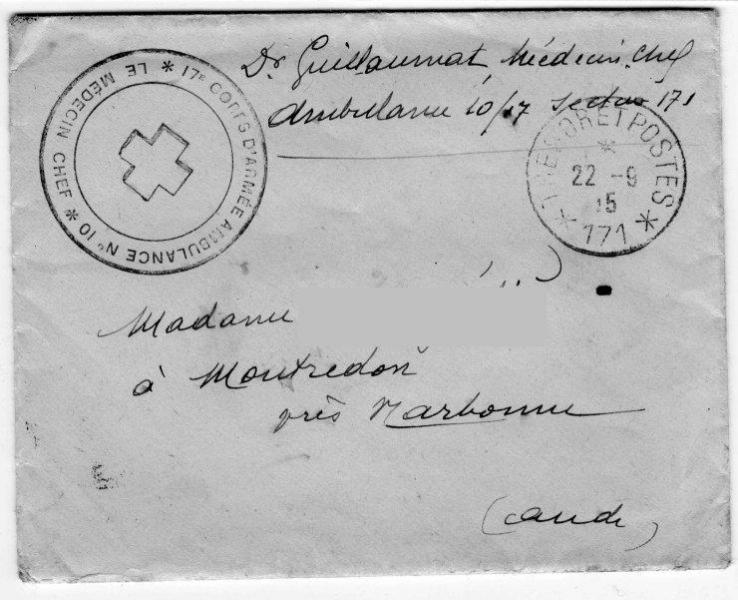 Dr Guillaumat Médecin Chef
Ambulance 10/17 Secteur 171
* 17e CORPS D'ARMÉE AMBULANCE N° 10 * LE MÉDECIN CHEF
TRESOR ET POSTES
*
22 -9
15
* 171 *
Madame
à Montredon
près Narbonne
(Aude)